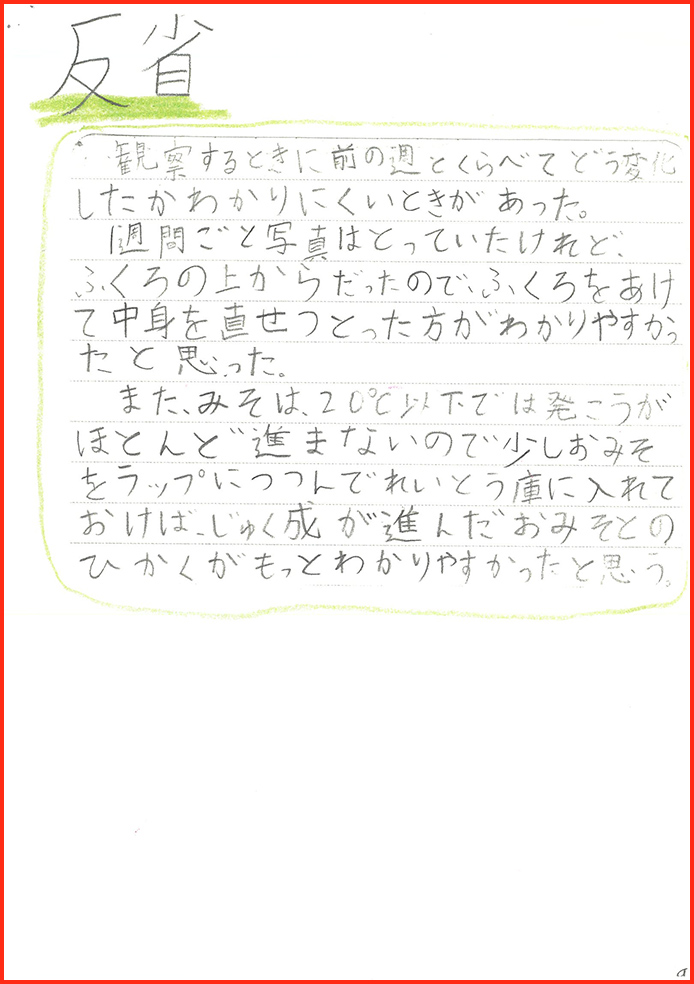 反省
観察するときに前の週とくらべてどう変化
したかわかりにくいときがあった。
1週間ごと写真はとっていたけれど、
ふくろの上からだったので、ふくろをあけ
て中身を直せつとった方がわかりやすかっ
たと思った。
また、みそは、20℃以下では発こうが
ほとんど進まないので少しおみそ
をラップにつつんでれいとう庫に入れて
おけば、じゅく成が進んだおみそとの
ひかくがもっとわかりやすかったと思う。